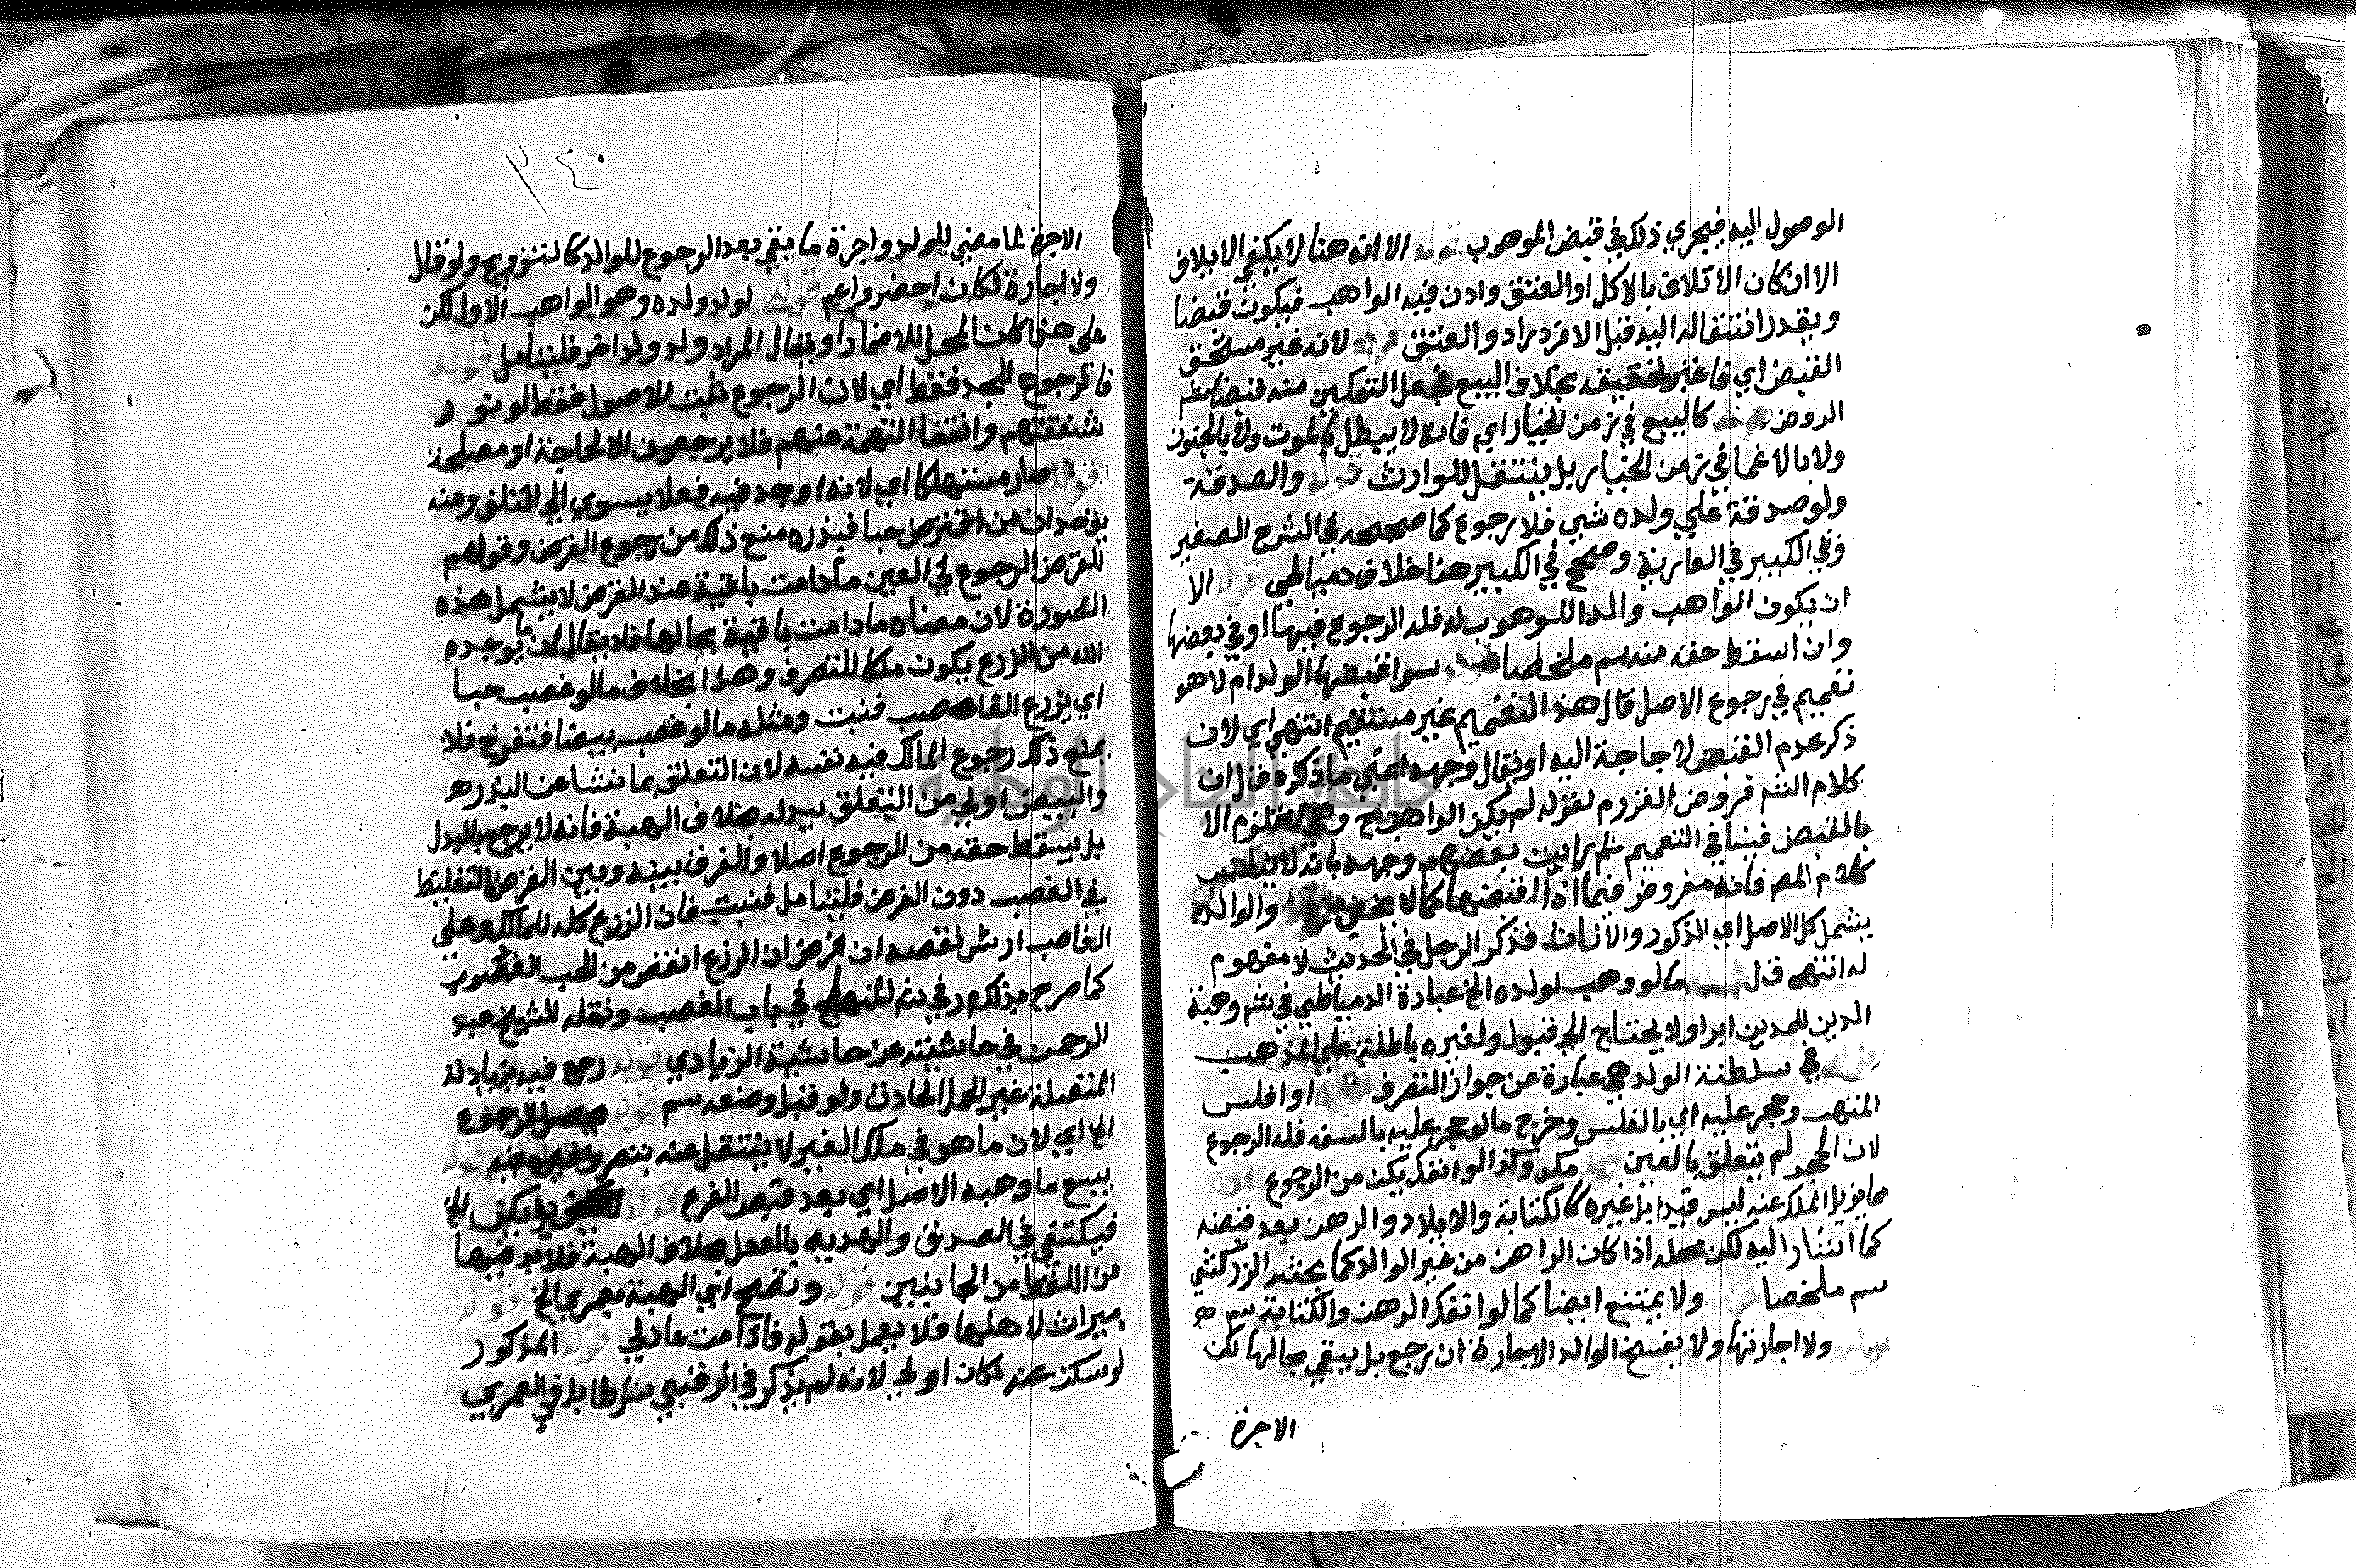 الوصول اليه فيجري ذلك في قبض الموهوب قوله الا انه هنا لا يكفي الا بلاف
الا ان كان الاتلاف بالاكل او العتق واذن فيه الواهب فيكون قبضا
ويقدر انتقاله اليه قبل الازدراد والعتق قوله لانه غير مستحق
القبض اي فاعتبر تحقيقه بخلاف البيع فجعل التمكين منه قبضا
الروض قوله كالبيع في زمن الخيار اي فانه لا يبطل بالموت ولا بالجنون
ولا بالاغما في زمن الخيار بل ينتقل للوارث قوله والصدقة
ولو صدقة علي ولده شي فلا رجوع كما صححه في الشرح الصغير
وفي الكبير في العارية وصحح في الكبير هنا خلاف دمياطي قوله الا
ان يكون الواهب والدا للموهوب له فله الرجوع فيها او في بعضها
وان اسقط حقه منه سم ملخصا قوله سوا قبضها الولد ام لا هو
تعميم في رجوع الاصل قال هذا التعميم غير مستقيم انتهي اي لان
ذكر عدم القبض لا حاجة اليه او يقال وجهه المحشي ما ذكره قال ان
كلام الشم فروض اللزوم لقوله لم يكن الواهب الخ وهي لا تلزم الا
بالقبض فينافي التعميم ثم رايت بعضهم وجهه بانه لا يناسب
كلام المص فانه مفروض فيما اذا اقبضها كما لا يخفي قوله والوالد
يشمل كل الاصل اي الذكور والاناث فذكر الرجل في الحديث لا مفهوم
له انتهي قال قوله ما لو وهب لولده الخ عبارة الدمياطي في شم وهبة
الدين للمدين ابرا ولا يحتاج الي قبول ولغيره باطلة علي المذهب
قوله في سلطنة الولد هي عبارة عن جواز التصرف قوله او افلس
المتهب وحجر عليه اي بالفلس وخرج ما لو حجر عليه بالسفه فله الرجوع
لان الحجر لم يتعلق بالعين مكد وكذا لو انفك يكن من الرجوع قوله
ما يزيل الملك عنه ليس قيدا بل غيره كالكتابة والايلاد والرهن بعد قبضه
كما اشار اليه لكن محله اذا كان الراهن من غير الوالد كما بحثه الزركشي
سم ملخصا قوله ولا يمتنع ايضا كما لو انفك الرهن والكتابة سم ه
قوله ولا اجارتها ولا يفسخ الوالد الاجارة ان رجع بل يبقي بحالها لكن
الاجرة
٢٤٠
الاجرة لما مضي للولد واجرة ما بقي بعد الرجوع للوالد كالتزويج ولو قال
ولا اجارة لكان احضر واعم قوله لولد ولده وهو الواهب الاول لكن
علي هذا كان المحل للاضمار او يقال المراد ولد ولد اخر فليتامل قوله
فالرجوع للجد فقط اي لان الرجوع ثبت للاصول فقط لوفور
شفقتهم وانتفا التهمة عنهم فلا يرجعون الا لحاجة او مصلحة
قوله صار مستهلكا اي لانه اوجد فيه فعلا يسوي الي التلف ومنه
يوخذ ان من اقترض حبا فبذره منع ذلك من رجوع القرض وقولهم
للقرض الرجوع في العين ما دامت باقية عند القرض لا يشمل هذه
الصورة لان معناه ما دامت باقية بحالها فلا يقال ان ما يوجده
الله من الزرع يكون ملكا للتصرف وهذا بخلاف ما لو غصب حبا
اي يزرع الغاصب فنبت ومثله ما لو غصب بيضا فتفرخ فلا
يمنع ذلك رجوع المالك فيه نفسه لان التعلق بما نشا عن البذر ه
والبيض اولي من التعلق ببدله بخلاف الهبة فانه لا يرجع بالبدل
بل يسقط حقه من الرجوع اصلا والفرق بينه وبين القرض التغليظ
في الغصب دون القرض فليتامل فنبت فان الزرع كله للمالك وعلي
الغاصب ارش نقصه ان فرض ان الزرع انقص من الحب المغصوب
كما صرح بذلك في شم المنهج في باب الغصب ونقله الشيخ عبد
الرحمن في حاشيته عن حاشية الزيادي قوله رجع فيه بزيادة
المتصلة غير الحمل الحادث ولو قبل وضعه سم قوله يحصل الرجوع
الخ اي لان ما هو في ملك الغير لا ينتقل عنه بتصرف غيره فيه قوله
ببيع ما وهبه الاصل اي بعد قبض الفرع قوله ويكفي الخ
فيكتفي في الصدقة والهدية بالفعل بخلاف الهبة فلا بد فيها
من اللفظ من الجانبين قوله وتصح اني الهبة بعمري الخ قوله
ميراث لاهلها فلا يعمل بقوله فاذا مت عاد لي قوله المذكور
لو سكت عنه لكان اولي لانه لم يذكر في الرقبي شرطا بل في العمري